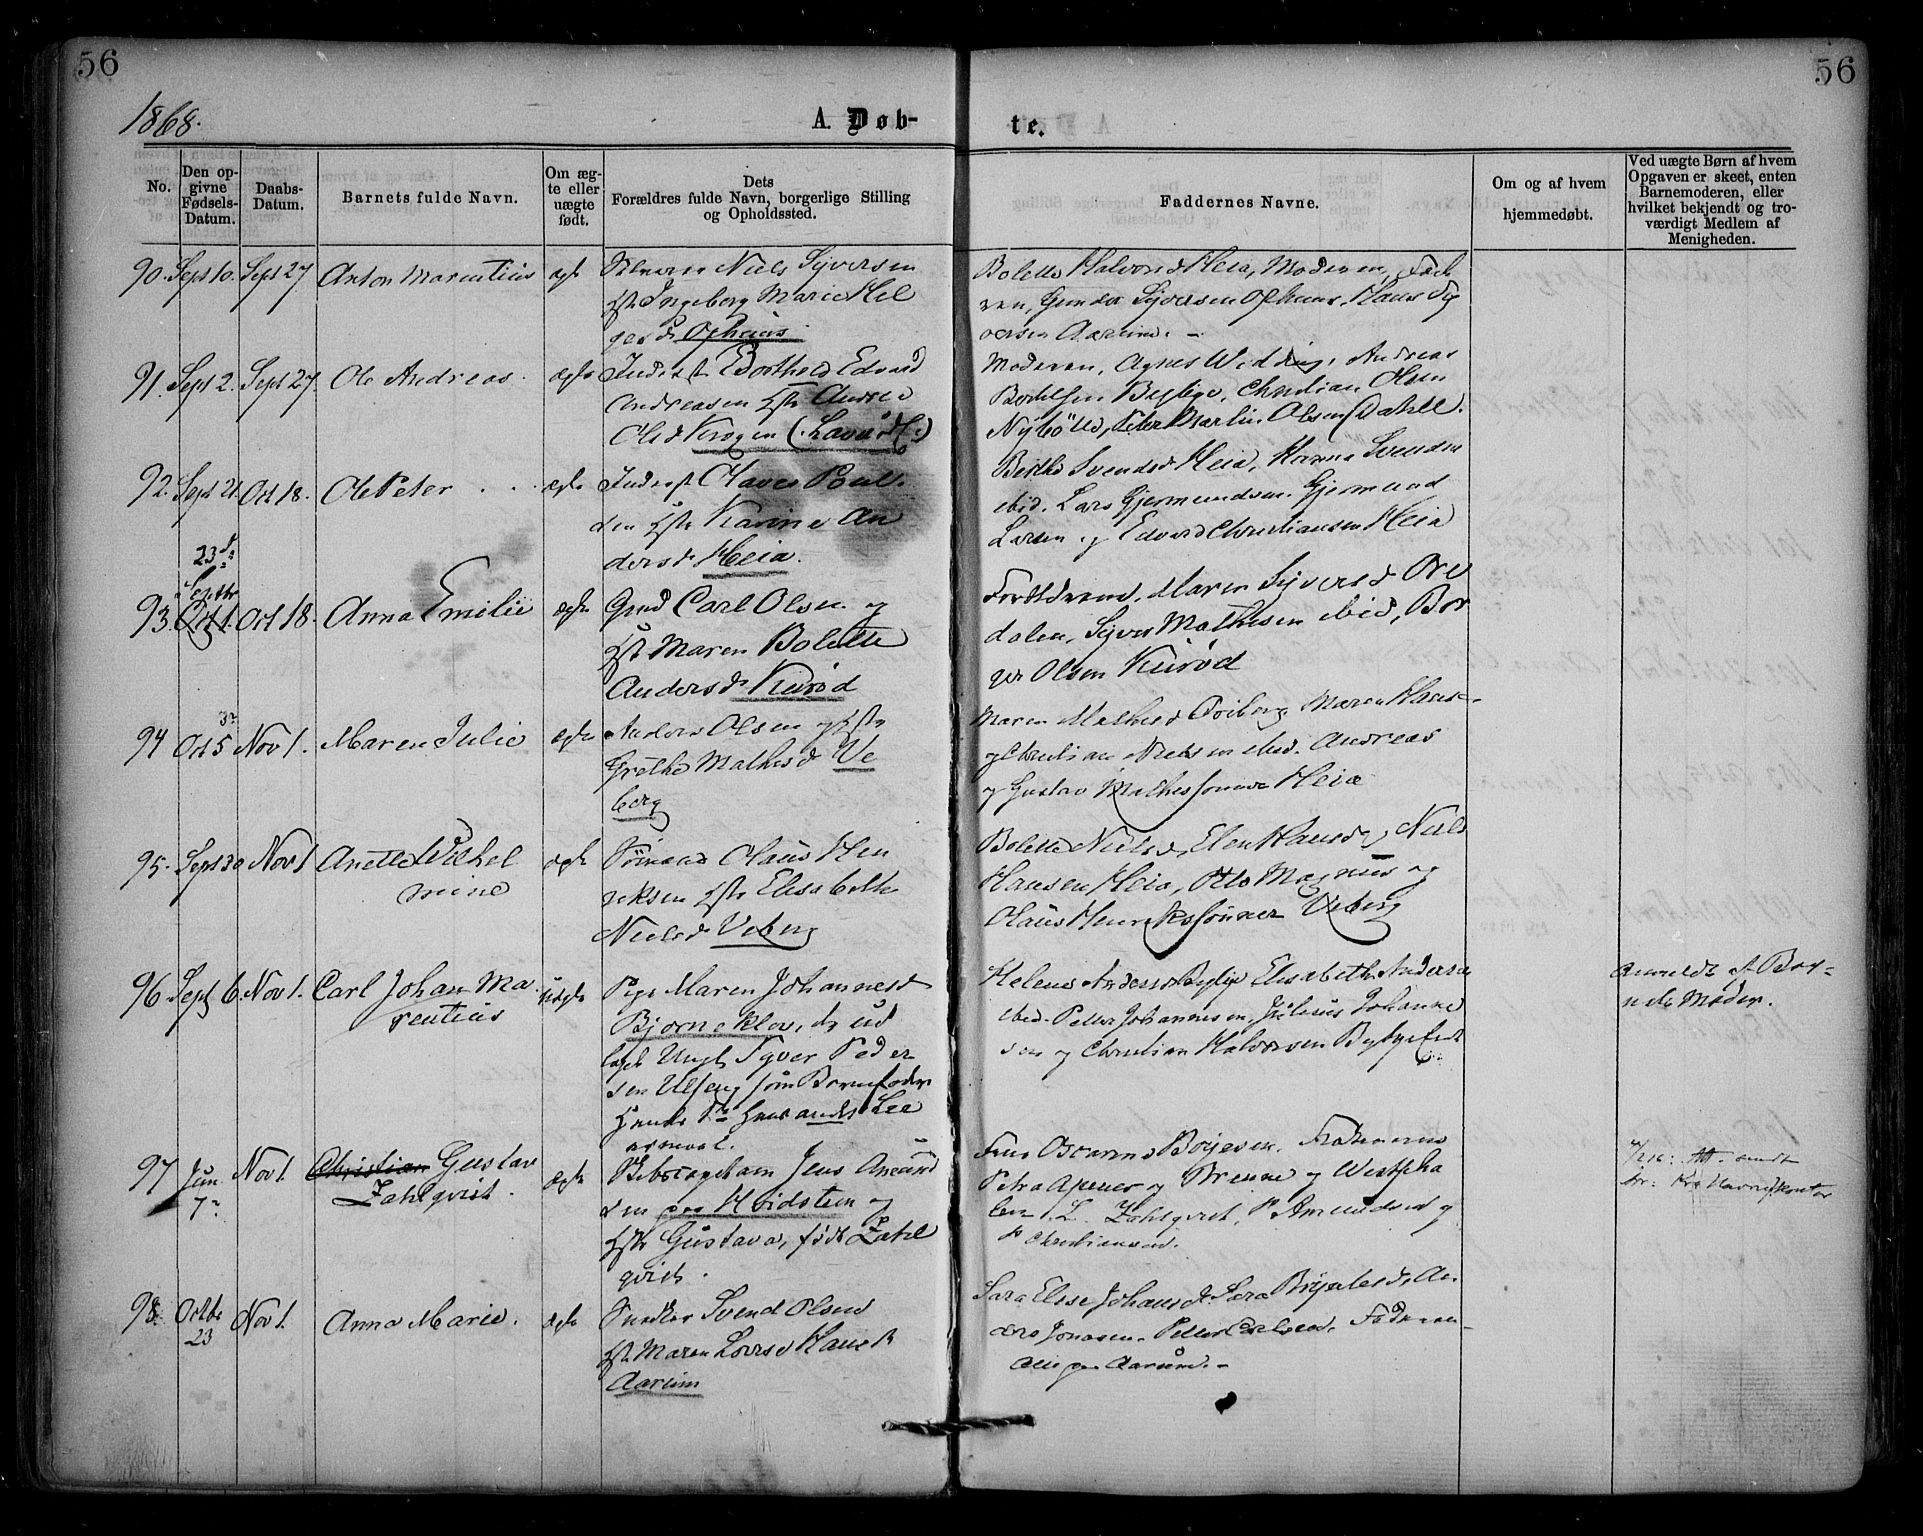 56
56
1868.
A. Døb-
te.
No.
Den op-
givne
Fødsels-
Datum.
Daabs-
Datum.
Barnets fulde Navn.
Om æg-
te eller
uægte
født.
Dets
Forældres fulde Navn, borgerlige Stilling
og Opholdssted.
Faddernes Navne.
Om og af hvem
hjemmedøbt.
Ved uægte Børn af hvem
Opgaven er skeet, enten
Barnemoderen, eller
hvilket bekjendt og tro-
værdigt Medlem af
Menigheden.
90. Sept 10. Sept 27 Anton Marentius ægte
Niels Syversen
Hstr Ingeborg Marie Hel
gesd Ophuus.
Bolette Halvorsd Heia, Moderen, Fade
ren, Gunder Syversen Ophuus, Hans Sy
versen Aarum. -
91. Sept 2. Sept 27. Ole Andreas. ægte
Inderst Berthold Edvard
Andreasen Hstr Andrea
Olsd Krogen
Moderen, Agnes Wedding, Andreas
Bodelsen Byglye, Christian Olsen
Nybölle, Peter Martin Olsen Dahle.
92. Sept 21. Oct 18. Ole Peter ægte
Inderst Olaves Poul-
sen Hstr Karine An
dersd Heia.
Berthe Svendsd Heia, Hanna Svendsd
ibid. Lars Gjermundsen. Gjermund
Larsen og Edvard Christiansen Heia
23de
Septbr
93. Oct 1. Oct 18. Anna Emilie ægte
Gmd Carl Olsen og
Hst Maren Bolette
Andersd Kurød
Forældrene, Maren Syversd Ore
dalen, Syver Mathesen ibid, Bor
ger Olsen Kurød
94 Oct 5 Nov 1. Maren Julie ægte
Anders Olsen og Hstr
Grethe Mathesd Ve
berg
Maren Mathesd Oviberg Maren Hans-
og Christian Nielsen ibid. Andreas
og Gustav Mathessønner Heia
95. Sept 30 Nov 1 Anette Wilhel
mine
ægte
Sømand Olaus Hen
riksen Hstr Elisabeth
Nielsd Veberg
Bolette Nielsd, Elen Hansd, Niels
Hansen Heia, Otto Magnus og
Olaus Henrikssønner Veberg
96 Sept 6. Nov 1. Carl Johan Ma-
rentius
uægte
Pige Maren Johannesd
Bjørneklev, der ud
lagt Ungk Syver Peder
sen Ulfeng som Barnefader
Hendes 1ste Hans andet Lei
ermaal.
Helene Andersd Byglye Elisabeth Andersd
ibid. Petter Johannesen, Julius Johanne
sen og Christian Halvorsen Byglye
Anmeldt af Bar-
nets Moder.
97 Jun
7de
Nov 1. Christian Gustav
Zahlqvist.
ægte
Skibscapitain Jens Amund
sen paa Hvidsteen og
Hstr Gustava, født Zahl
qvist.
Petra Apenes og Brenne og Westpha
len, L. Zahlqvist, P Amundsen og
P Christiansen.
98. Octbr
23
Nov 1. Anna Marie. ægte
Snedker Svend Olsen
Hstr Maren Lovise Hansd
Aarum
Sara Elise Johansd. Sara Bryntesd, An
ders Jonasen. Petter Carlsen. Faderen
Alle paa Aarum. -